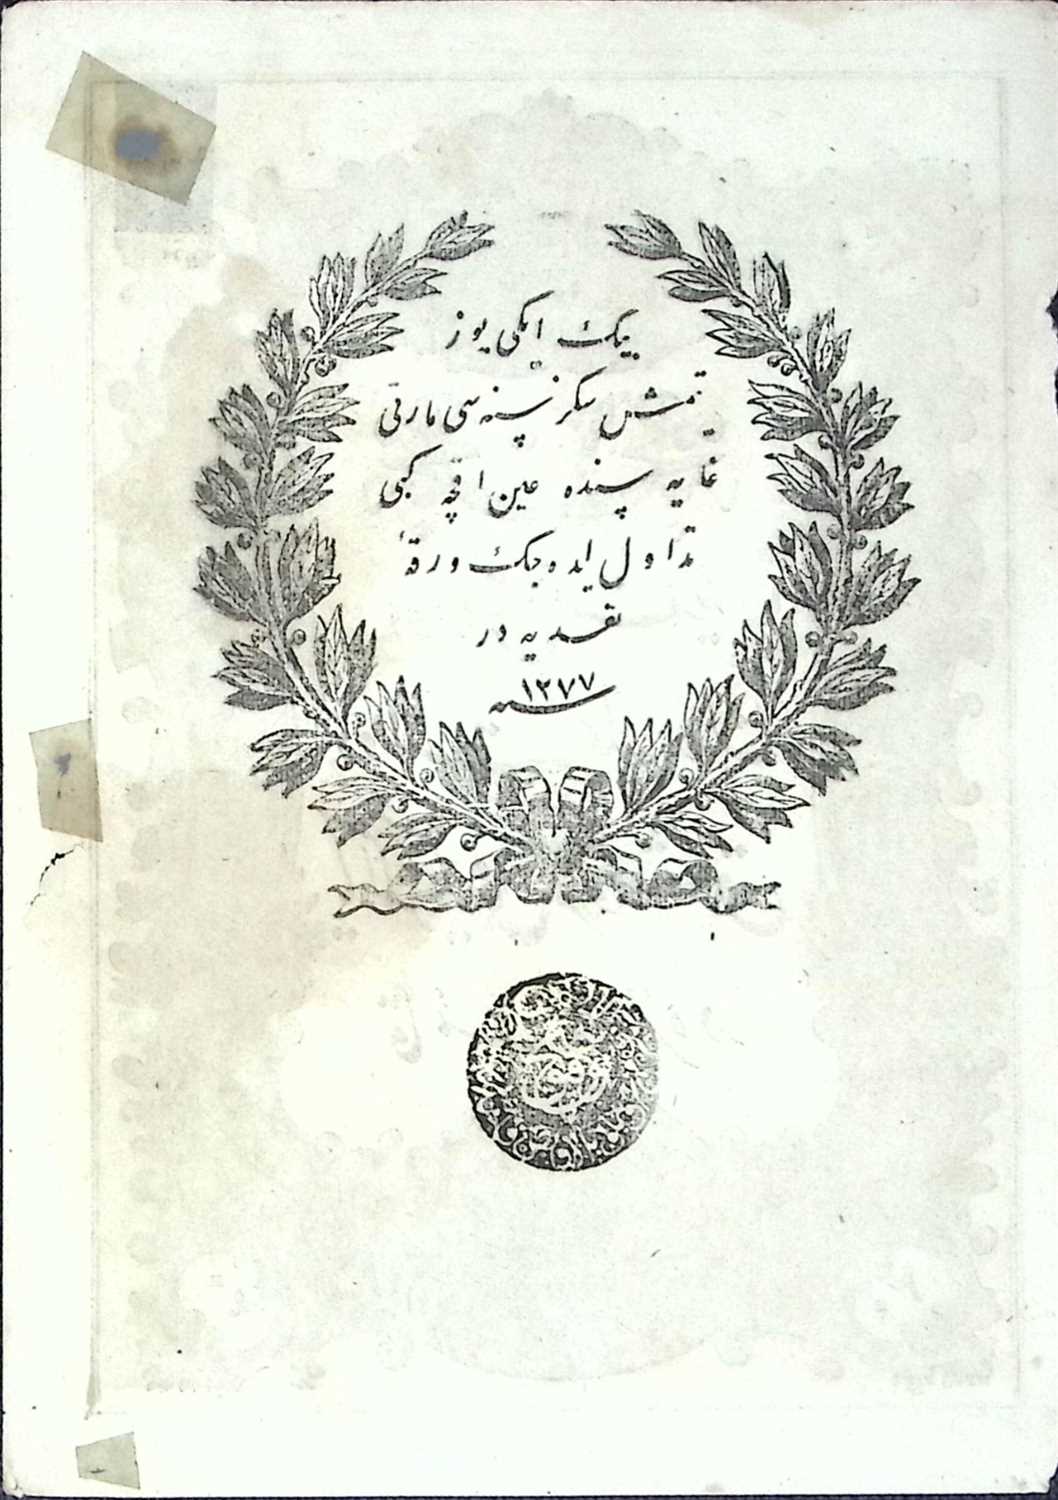 بیڭ ایكی یوز
یتمش سكز سنه سی مارتی
غایه سنده عین اقچه كبی
تداول ایده جك ورقهٔ
نقدیه در
سنه ١٢٧٧